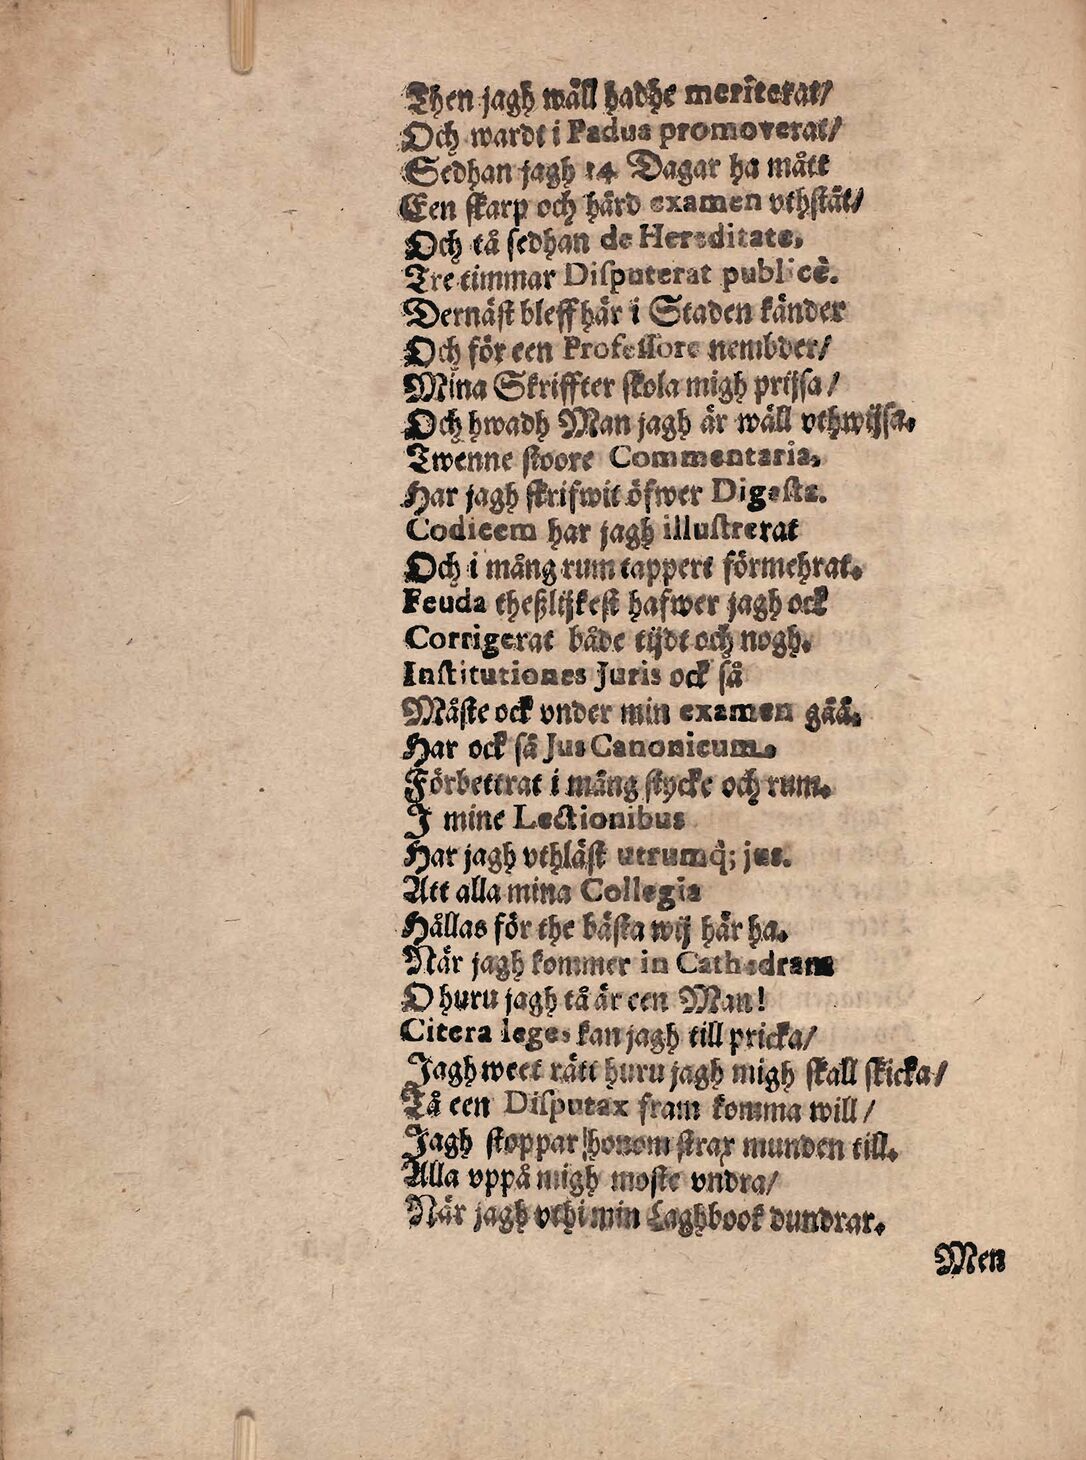 Then jagh wäll hadhe meriterat/
Och wardt i Padua promoverat/
Sedhan jagh 14 Dagar ha mått
Een skarp och hård examen vthstått/
Och tå sedhan de Hereditate,
Tre timmar Disputerat publicè.
Dernäst bleff här i Staden känder
Och för een Professore nembder/
Mina Skriffter skola migh prijsa/
Och hwadh Man jagh är wäll vthwijsa.
Twenne stoore Commentaria,
Har jagh skrifwit öfwer Digesta.
Codicem har jagh illustrerat
Och i mång rum tappert förmehrat.
Feuda theßlijkest hafwer jagh ock
Corrigerat både tijdt och nogh.
Institutiones Juris ock så
Måste ock vnder min examen gåå.
Har ock så Jus Canonicum.
Förbettrat i mång stycke och rum.
J mine Lectionibus
Har jagh vthläst utrumq̀; jus.
Att alla mina Collegia
Hållas för the bästa wij här ha.
När jagh kommer in Cathedram
O huru jagh tå är een Man!
Citera leges kan jagh till pricka/
Jagh weet rätt huru jagh migh skall skicka/
Tå een Disputax fram komma will/
Jagh stoppar honom strax munden till.
Alla vppå migh moste vndra/
När jagh vthi min Laghbook dundrar.
Men